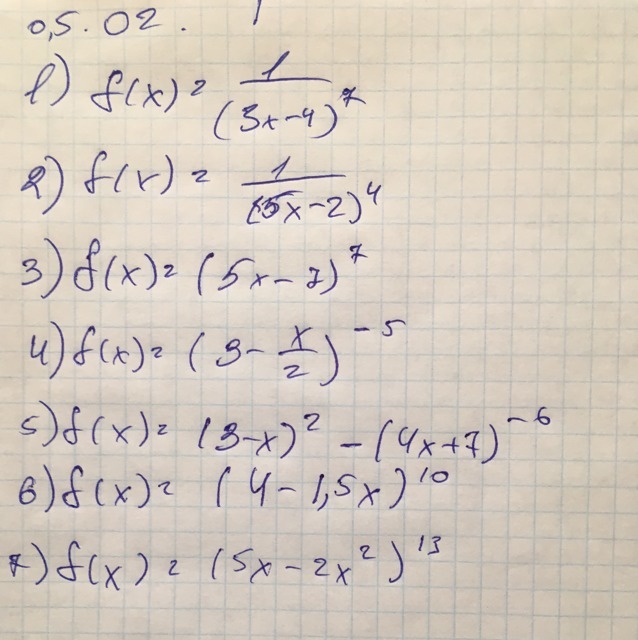 05.02.
1) f(x) = 1/(3x-4)^7
2) f(x) = 1/(5x-2)^4
3) f(x) = (5x-7)^7
4) f(x) = (3 - x/2)^-5
5) f(x) = (3-x)^2 - (4x+7)^-6
6) f(x) = (4-1,5x)^10
7) f(x) = (5x-2x^2)^13